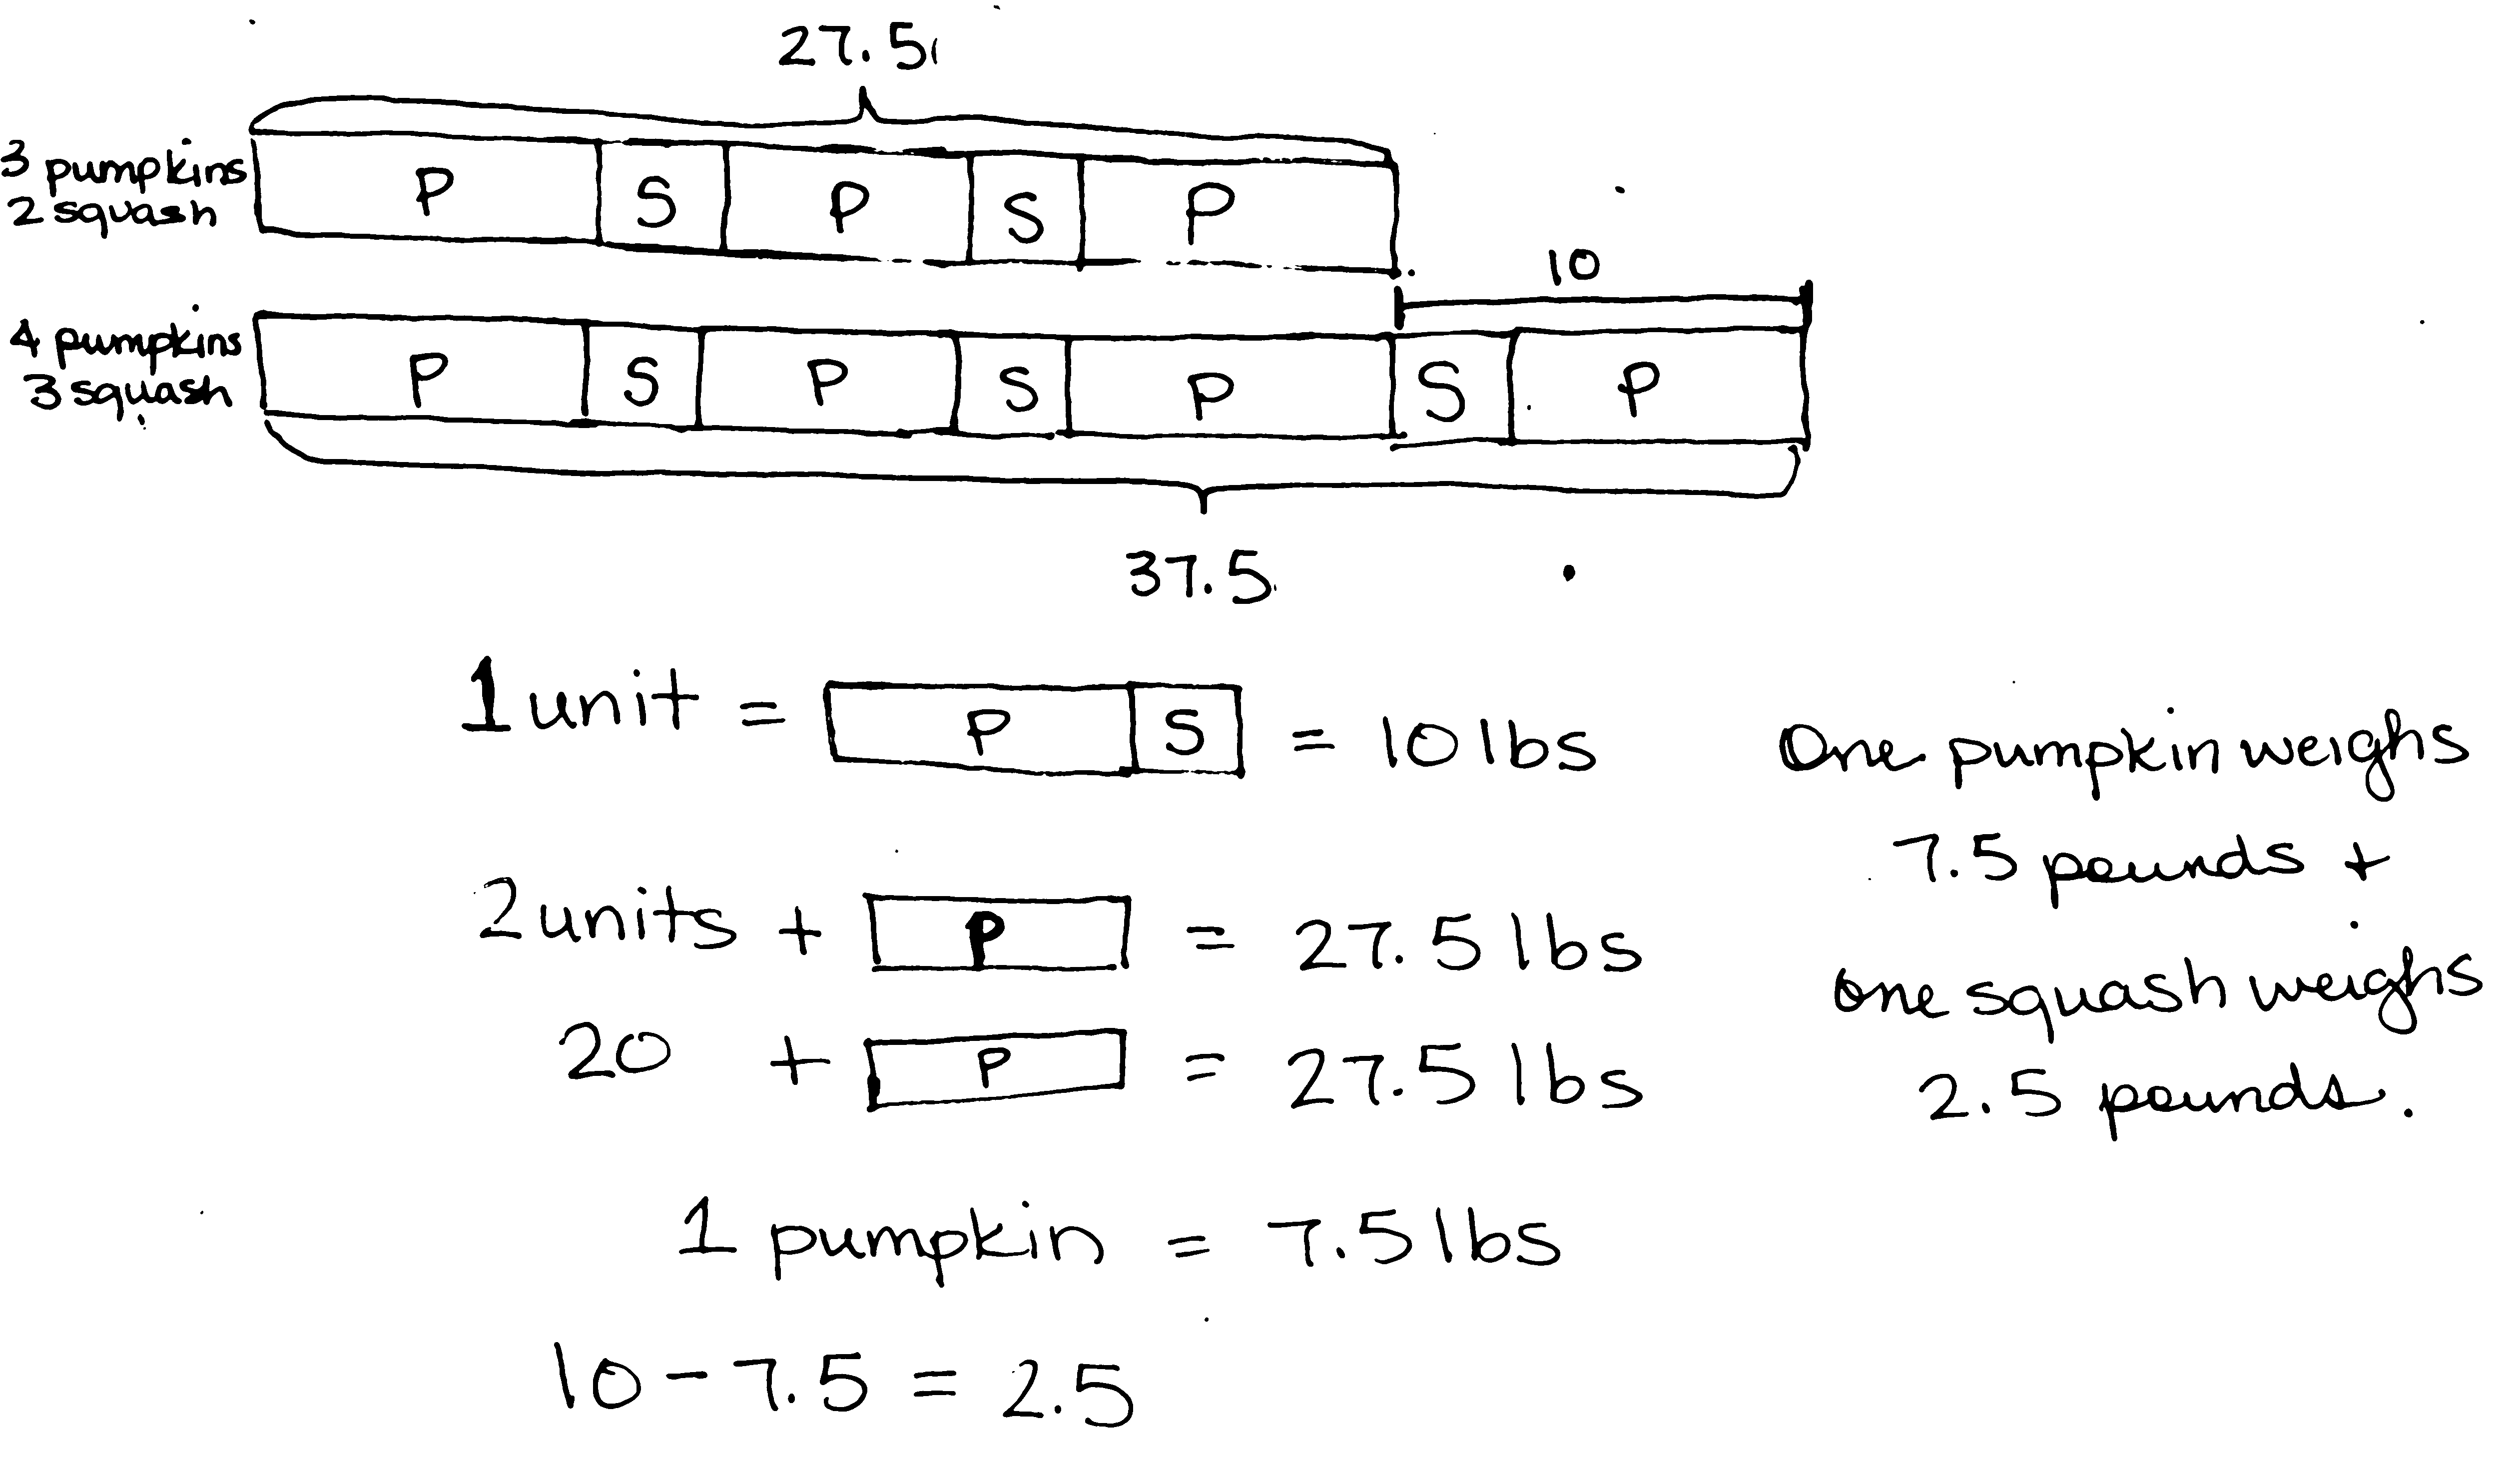 27.5
3 pumpkins
2 squash
P S P S P
10
4 pumpkins
3 squash
P S P S P S P
37.5
1 unit = P S = 10 lbs
2 units + P = 27.5 lbs
20 + P = 27.5 lbs
1 pumpkin = 7.5 lbs
10 - 7.5 = 2.5
One pumpkin weighs
7.5 pounds +
one squash weighs
2.5 pounds.